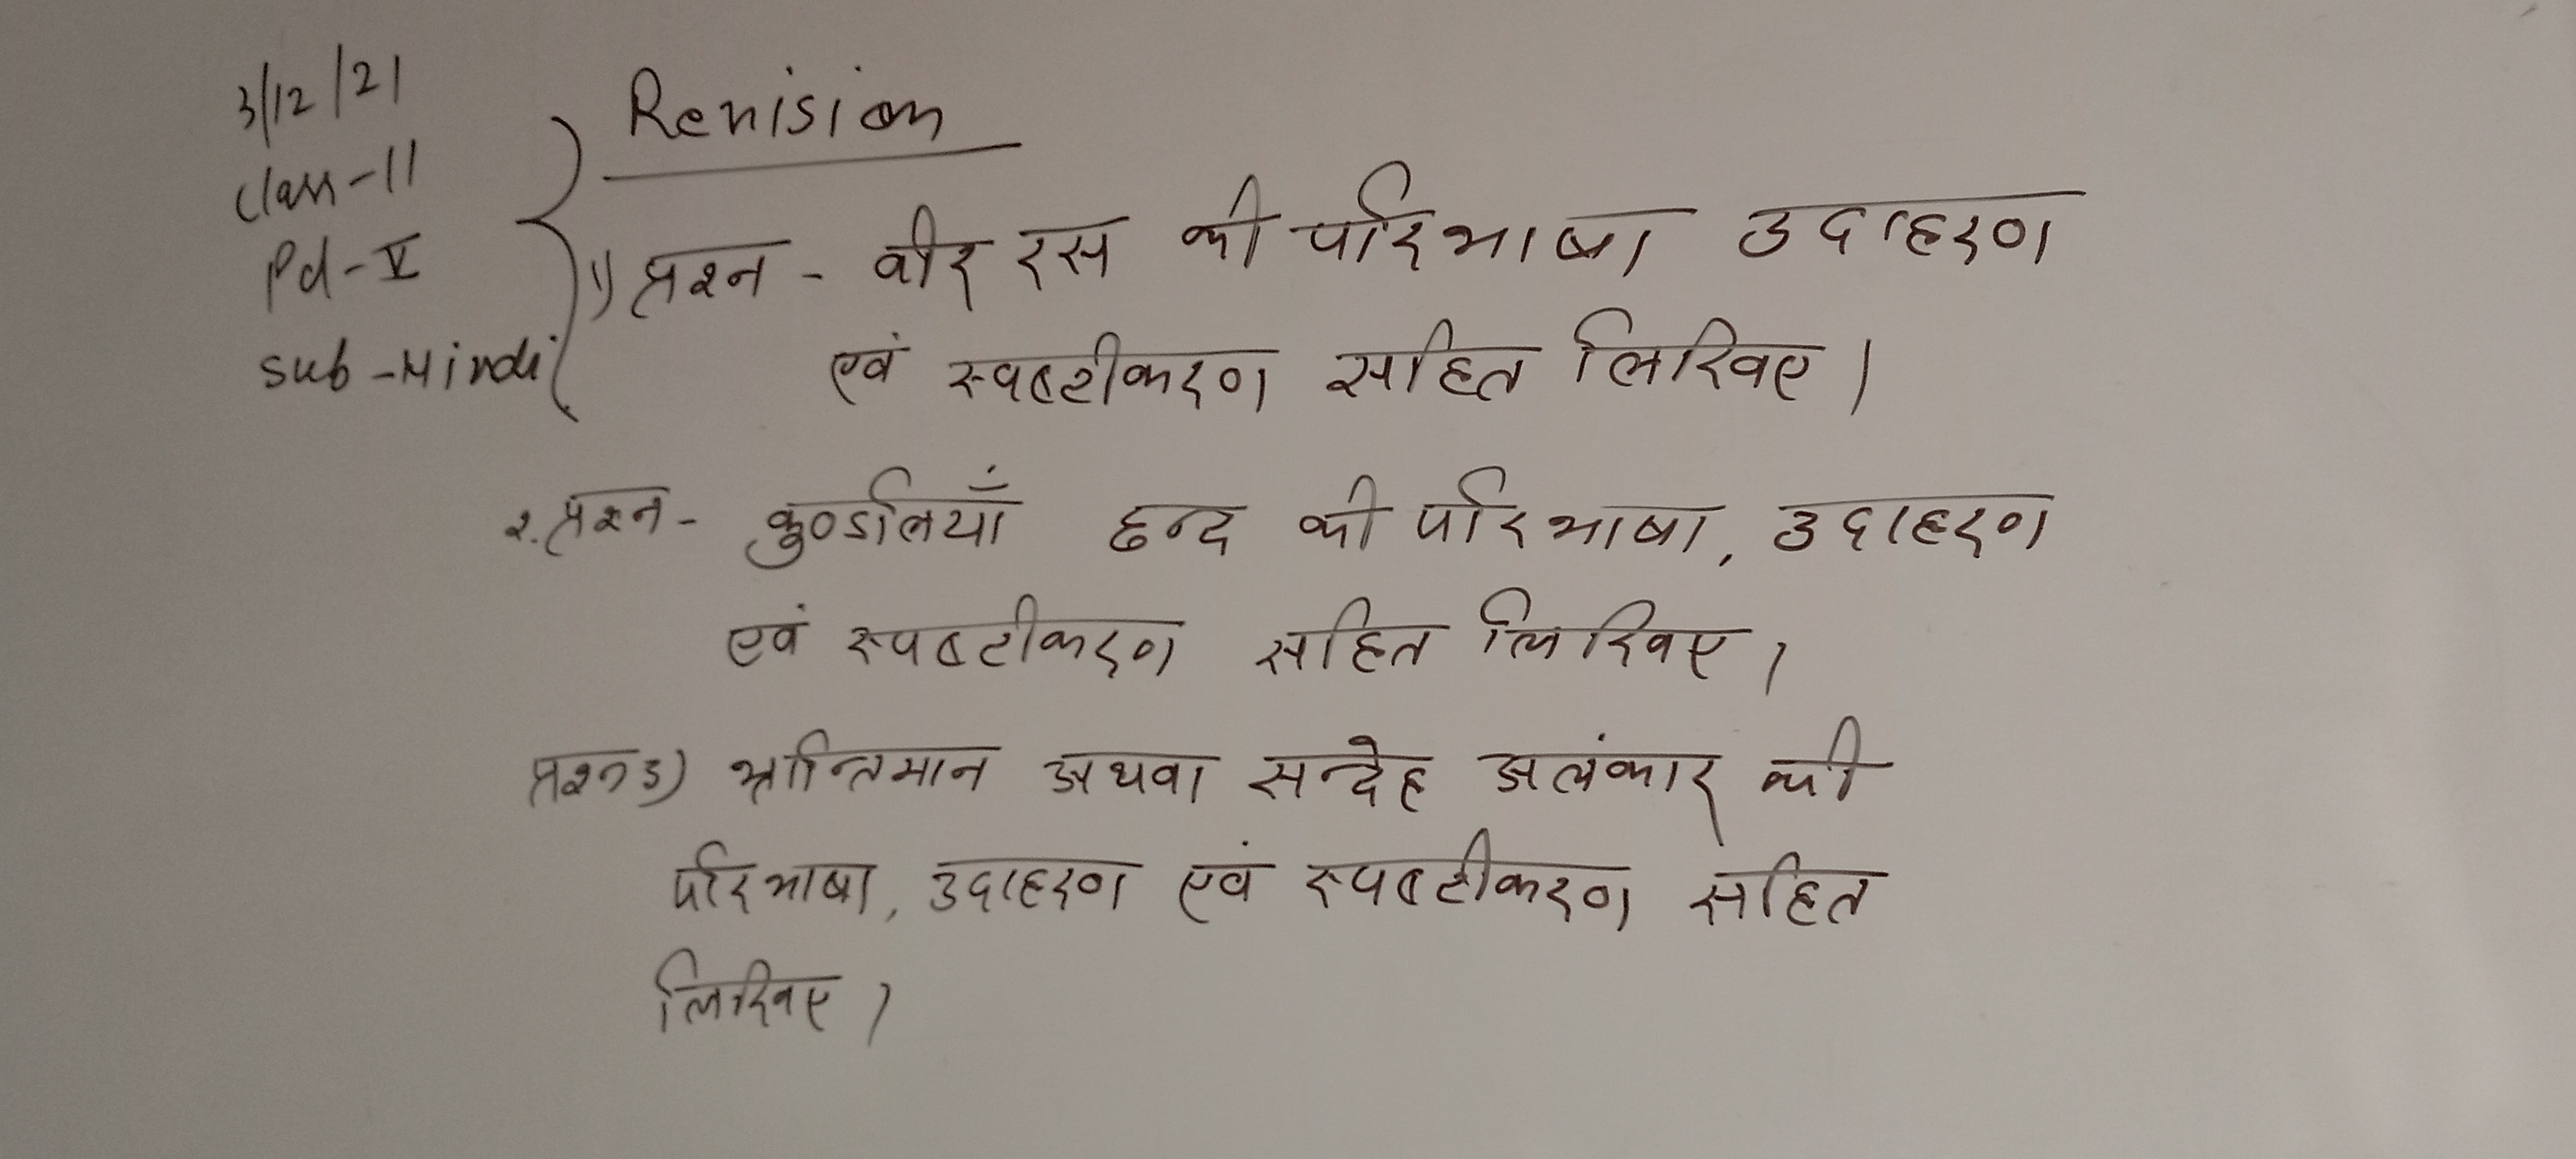 3/12/21
Class-11
Pd-V
Sub-Hindi
Revision
1) प्रश्न - वीर रस की परिभाषा उदाहरण
एवं स्पष्टीकरण सहित लिखिए।
२. प्रश्न - कुण्डलियाँ छन्द की परिभाषा, उदाहरण
एवं स्पष्टीकरण सहित लिखिए।
प्रश्न 3) भ्रान्तिमान अथवा सन्देह अलंकार की
परिभाषा, उदाहरण एवं स्पष्टीकरण सहित
लिखिए।